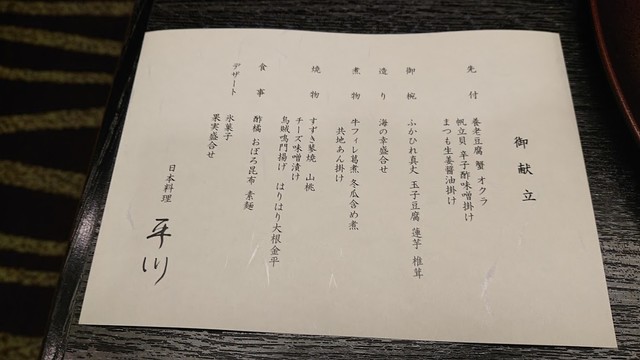 御献立
先付
養老豆腐 蟹 オクラ
帆立貝 辛子酢味噌掛け
まつも生姜醤油掛け
御椀
ふかひれ真丈 玉子豆腐 蓮芋 椎茸
造り
海の幸盛合せ
煮物
牛フィレ葛煮 冬瓜含め煮
共地あん掛け
焼物
すずき蓼焼 山桃
チーズ味噌漬け
烏賊鳴門揚げ はりはり大根金平
食事
酢橘 おぼろ昆布 素麺
デザート
氷菓子
果実盛合せ
日本料理
平川